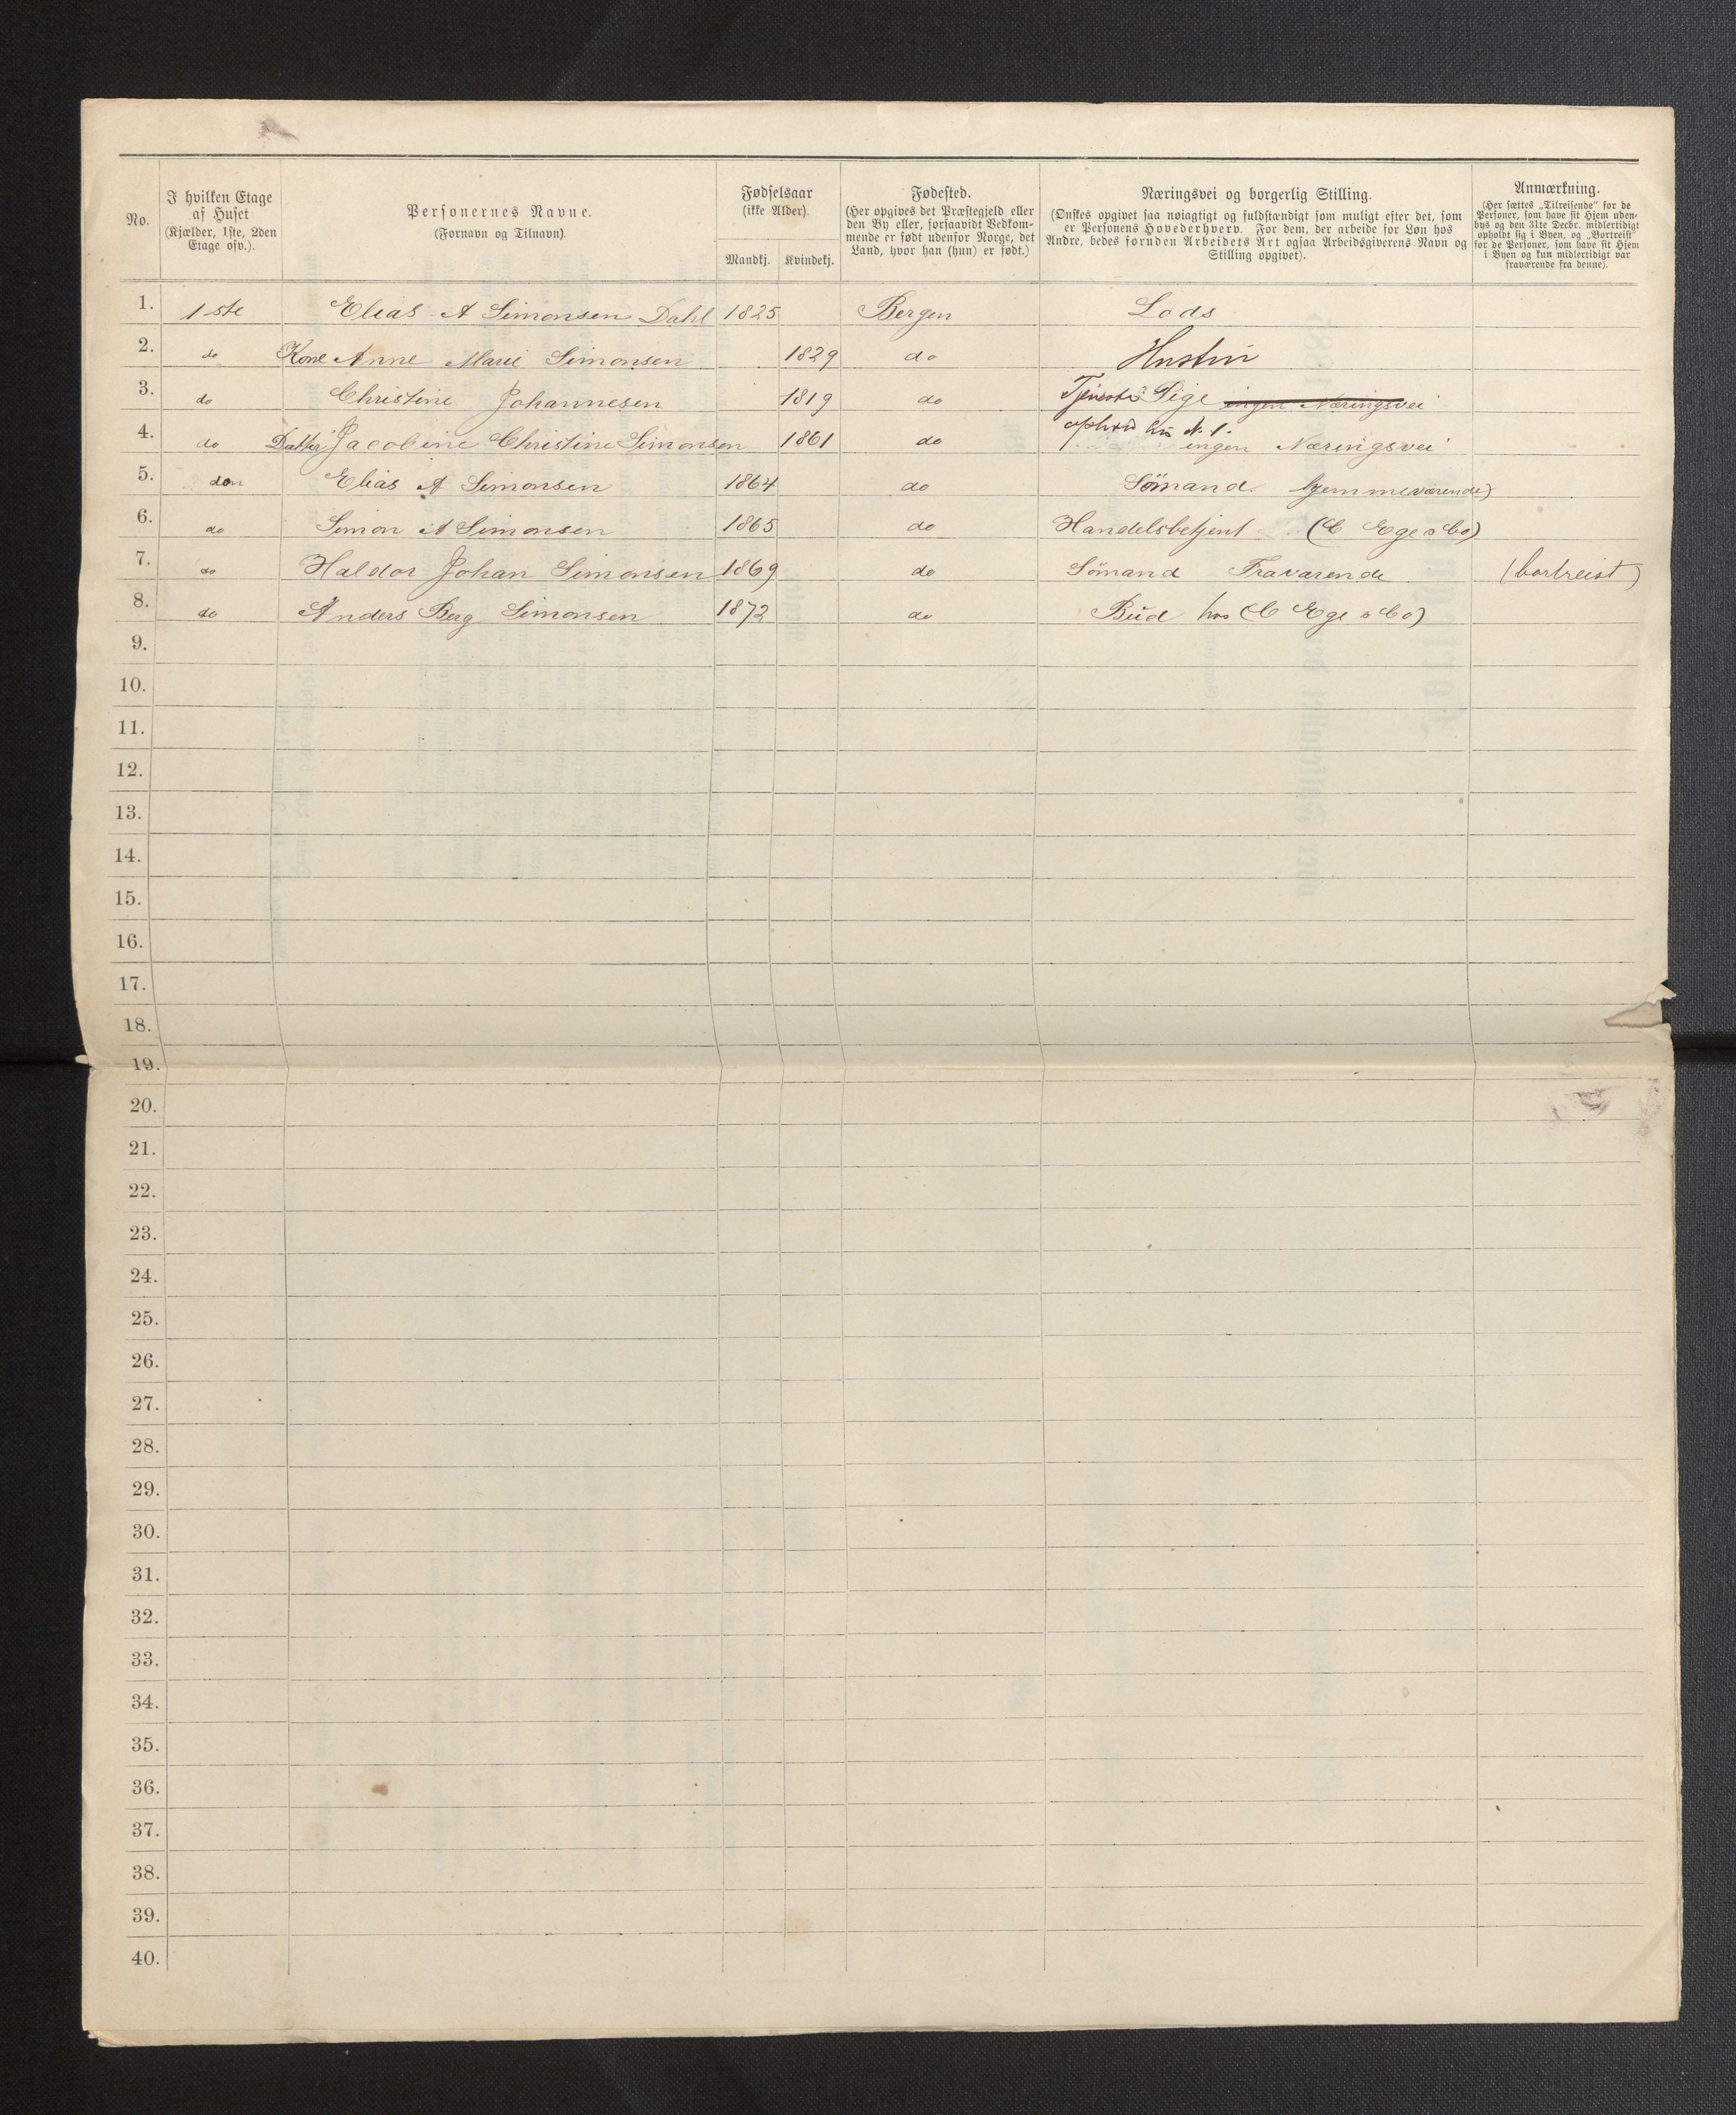 No.
I hvilken Etage
af Huset
(Kjælder, 1ste, 2den
Etage osv.).
Personernes Navne.
(Fornavn og Tilnavn).
Fødselsaar
(ikke Alder).
Mandkj. Kvindekj.
Fødested.
(Her opgives det Præstegjeld eller
den By eller, forsaavidt Vedkom-
mende er født udenfor Norge, det
Land, hvor han (hun) er født.)
Næringsvei og borgerlig Stilling.
(Ønskes opgivet saa nøiagtigt og fuldstændigt som muligt efter det, som
er Personens Hovederhverv. For dem, der arbeide for Løn hos
Andre, bedes foruden Arbeidets Art ogsaa Arbeidsgiverens Navn og
Stilling opgivet).
Anmærkning.
(Her sættes „Tilreisende" for de
Personer, som have sit Hjem uden-
bys og den 31te Decbr. midlertidigt
opholdt sig i Byen, og „Bortreist"
for de Personer, som have sit Hjem
i Byen og kun midlertidigt var
fraværende fra denne).
1. 1 ste Elias A Simonsen Dahl 1825 Bergen Lods
2. do Kone Anne Marie Simonsen 1829 do Hustru
3. do Christine Johannesen 1819 do Tjeneste Pige ingen Næringsvei
4. do Datter Jacobine Christine Simonsen 1861 do ingen Næringsvei
5. Elias A Simonsen 1864 do Sömand hjemmeværende)
6. do Simon A Simonsen 1865 do Handelsbetjent (C Ege & Co)
7. do Haldor Johan Simonsen 1869 do Sömand Fraværende (bortreist)
8. do Anders Berg Simonsen 1872 do Bud hos (C Ege & Co)
9.
10.
11.
12.
13.
14.
15.
16.
17.
18.
19.
20.
21.
22.
23.
24.
25.
26.
27.
28.
29.
30.
31.
32.
33.
34.
35.
36.
37.
38.
39.
40.